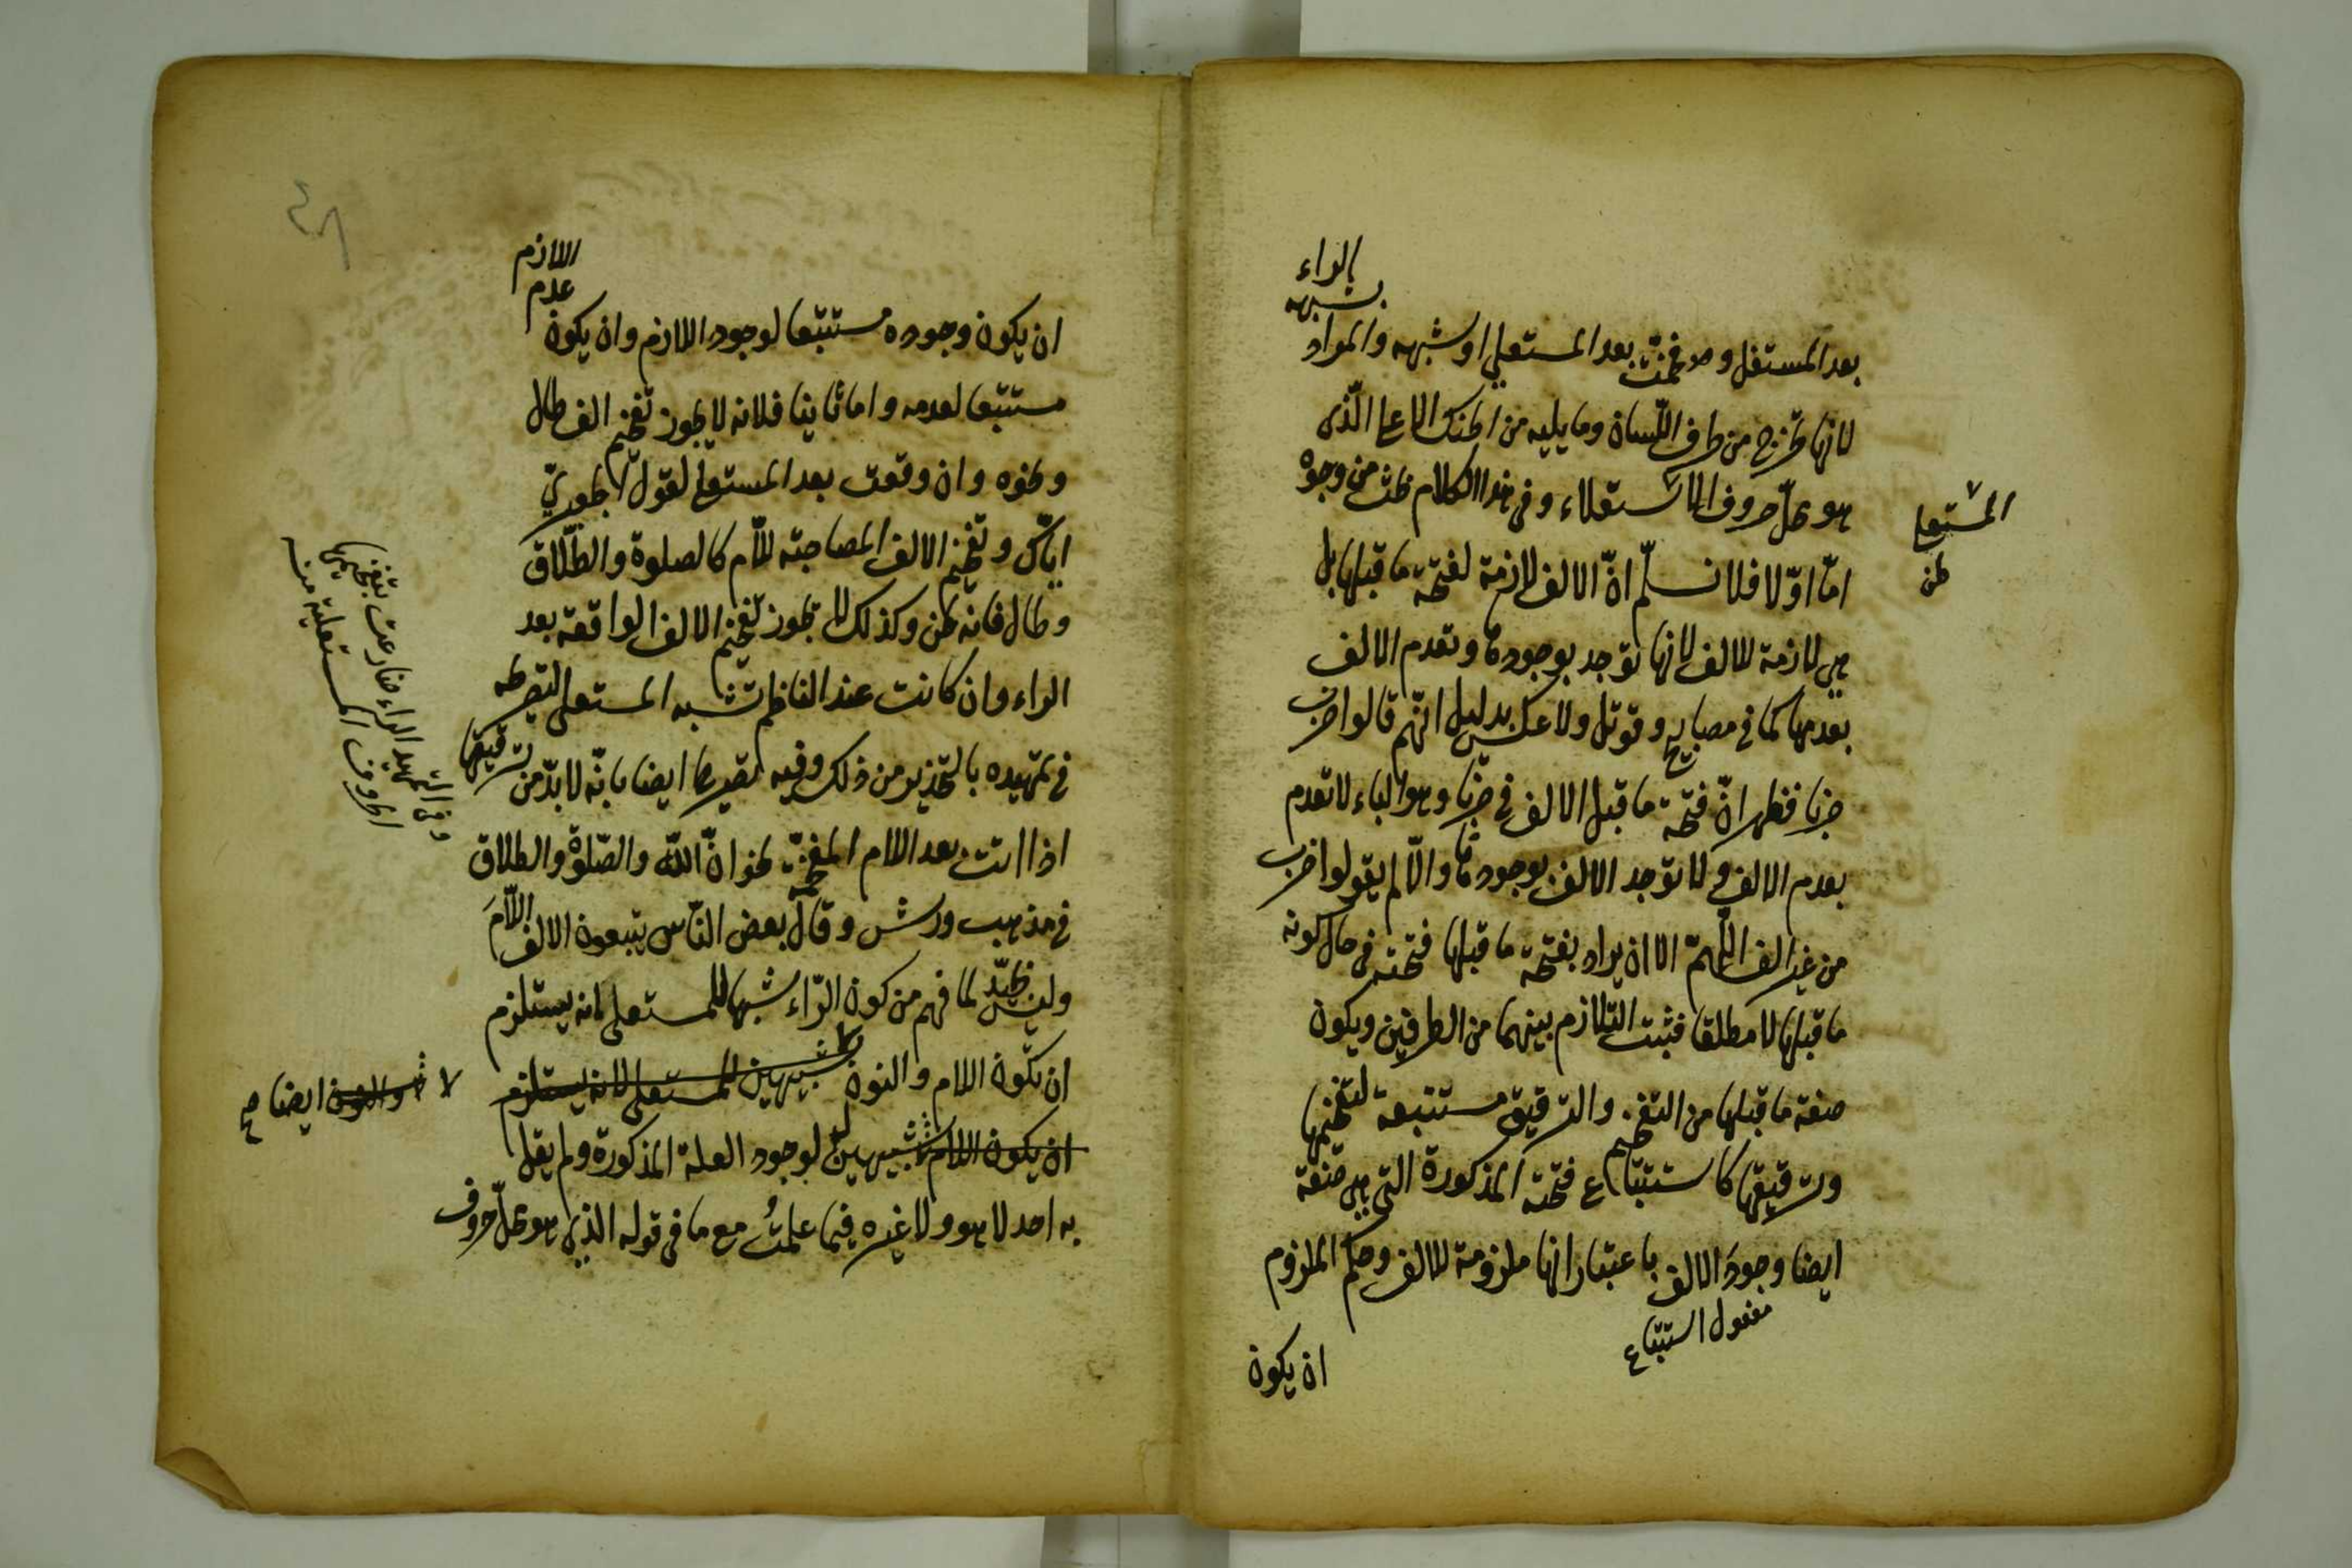 بعد المستفل وفخمت بعد المستعلي او شبهه والمراد
بشبهه
بالراء
لانها تخرج من طرف اللّسان وما يليه من الحنك الاعلى الّذى
هو محلّ حروف الاستعلاء وفى هذا الكلام بحث من وجوه
امّا اوّلا فلا نسلّم انّ الالف لازمة لفتحة ما قبلها بل
هى لازمة للالف لانها توجد بوجودها وتعدم الالف
بعدمها كما فى مصابيح وقوتل ولا عكس بدليل انّهم قالوا ضرب
ضربا فظهر انّ فتحة ما قبل الالف فى ضربا وهو الباء لا تعدم
بعدم الالف ولا توجد الالف بوجودها والّا لم يقولوا ضرب
من غير الف اللّهمّ الا ان يراد بفتحة ما قبلها فتحته فى حال كونه
ما قبلها لا مطلقا فثبت التلازم بينهما من الطرفين ويكون
صفة ما قبلها من التفخيم والترقيق مستتبعة لتفخيمها
وترقيقها كاستتباع فتحته المذكورة التى هى صفة
ايضا وجود الالف باعتبار انها ملزومة للالف وحكم الملزوم
مفعول استتباع
ان يكون
المستعلى
ان يكون وجوده مستتبعا لوجود اللازم وان يكون
عدم
اللازم
مستتبعا لعدمه واما ثانيا فلانه لا يجوز تفخيم الف طال
ونحوه وان وقعت بعد المستعلى لقول الجعبريّ
ايّاك وتفخيم الالف المصاحبة للّام كالصلوة والطّلاق
وطال فانه لحن وكذلك لا يجوز تفخيم الالف الواقعة بعد
الراء وان كانت عند الناظم تشبه المستعلى لتصريحه
فى تمهيده بالتحذير من ذلك وفيه تصريحا ايضا بانّه لا بدّ من ترقيقها
اذا اتت بعد اللام المفخّمة نحو انّ اللّه والصّلوة والطلاق
فى مذهب ورش وقال بعض النّاس يتبعون الالف اللّام
وليس بجيّد لما فهم من كون الرّاء شبيها للمستعلى لانه يستلزم
ان تكون اللام والنون شبيهين للمستعلى لانه يستلزم
ان يكون اللام شبيهين لوجود العلة المذكورة ولم يقل
به احد لا هو ولا غيره فيما علمتُ مع ما فى قوله الذى هو محلّ حروف
والنون ايضا صح